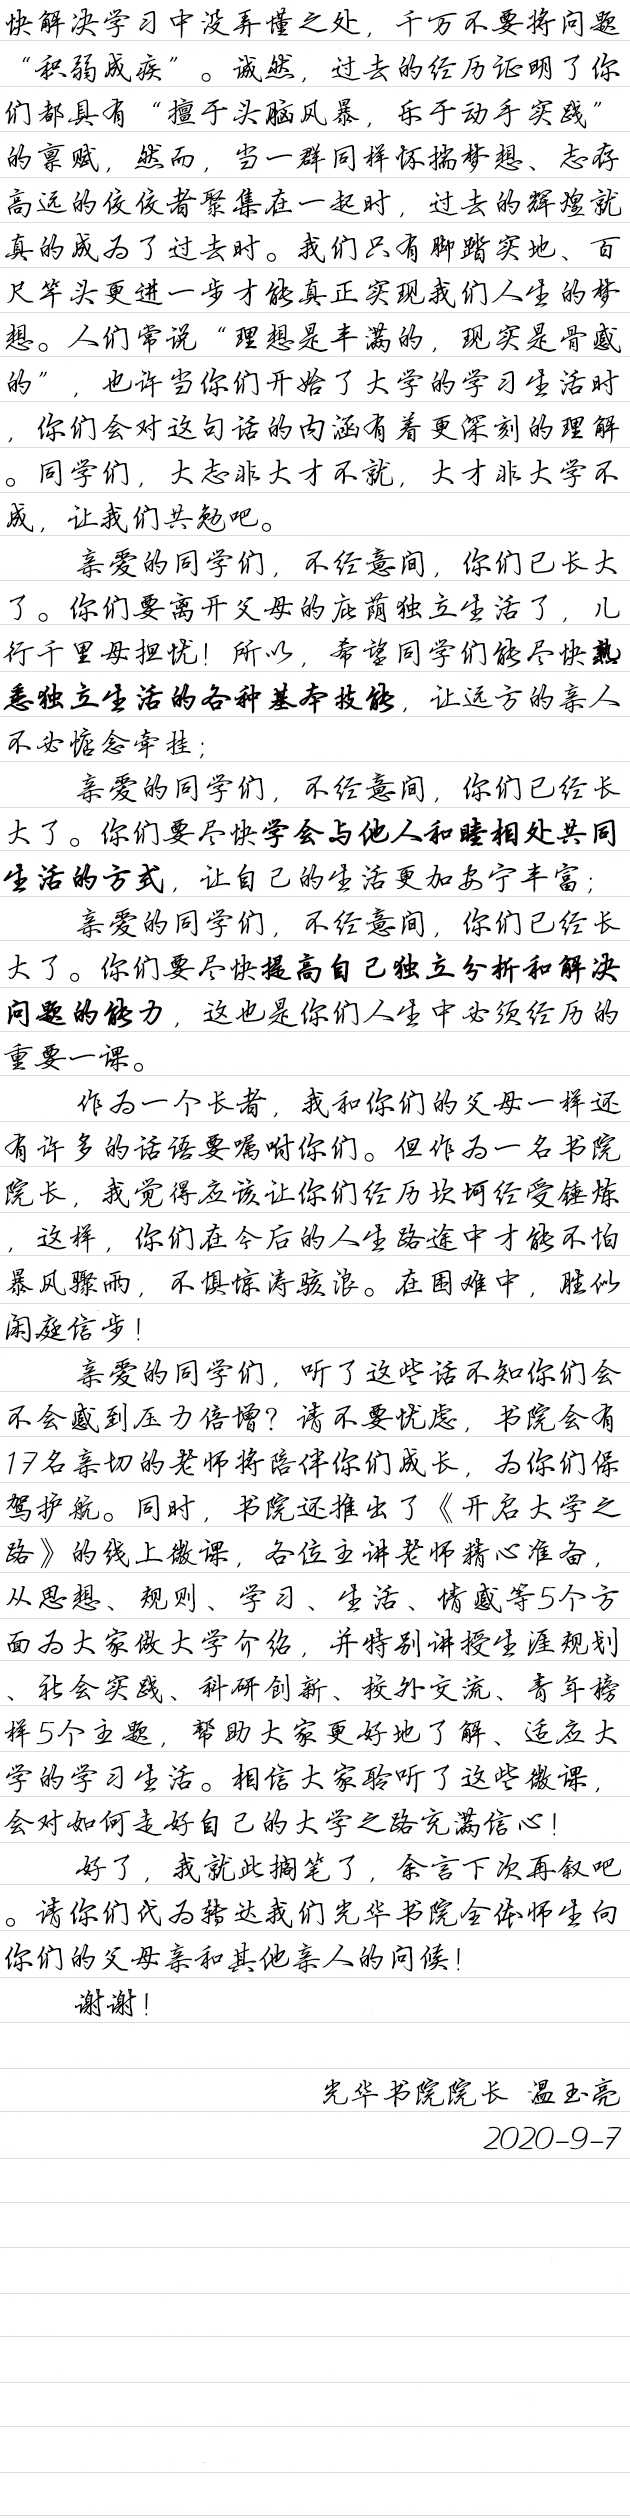 快解决学习中没弄懂之处，千万不要将问题
“积弱成疾”。诚然，过去的经历证明了你
们都具有“擅于头脑风暴，乐于动手实践”
的禀赋，然而，当一群同样怀揣梦想、志存
高远的佼佼者聚集在一起时，过去的辉煌就
真的成为了过去时。我们只有脚踏实地、百
尺竿头更进一步才能真正实现我们人生的梦
想。人们常说“理想是丰满的，现实是骨感
的”，也许当你们开始了大学的学习生活时
，你们会对这句话的内涵有着更深刻的理解
。同学们，大志非大才不就，大才非大学不
成，让我们共勉吧。
亲爱的同学们，不经意间，你们已长大
了。你们要离开父母的庇荫独立生活了，儿
行千里母担忧！所以，希望同学们能尽快熟
悉独立生活的各种基本技能，让远方的亲人
不必惦念牵挂；
亲爱的同学们，不经意间，你们已经长
大了。你们要尽快学会与他人和睦相处共同
生活的方式，让自己的生活更加安宁丰富；
亲爱的同学们，不经意间，你们已经长
大了。你们要尽快提高自己独立分析和解决
问题的能力，这也是你们人生中必须经历的
重要一课。
作为一个长者，我和你们的父母一样还
有许多的话语要嘱咐你们。但作为一名书院
院长，我觉得应该让你们经历坎坷经受锤炼
，这样，你们在今后的人生路途中才能不怕
暴风骤雨，不惧惊涛骇浪。在困难中，胜似
闲庭信步！
亲爱的同学们，听了这些话不知你们会
不会感到压力倍增？请不要忧虑，书院会有
17名亲切的老师将陪伴你们成长，为你们保
驾护航。同时，书院还推出了《开启大学之
路》的线上微课，各位主讲老师精心准备，
从思想、规则、学习、生活、情感等5个方
面为大家做大学介绍，并特别讲授生涯规划
、社会实践、科研创新、校外交流、青年榜
样5个主题，帮助大家更好地了解、适应大
学的学习生活。相信大家聆听了这些微课，
会对如何走好自己的大学之路充满信心！
好了，我就此搁笔了，余言下次再叙吧
。请你们代为转达我们光华书院全体师生向
你们的父母亲和其他亲人的问候！
谢谢！
光华书院院长 温玉亮
2020-9-7